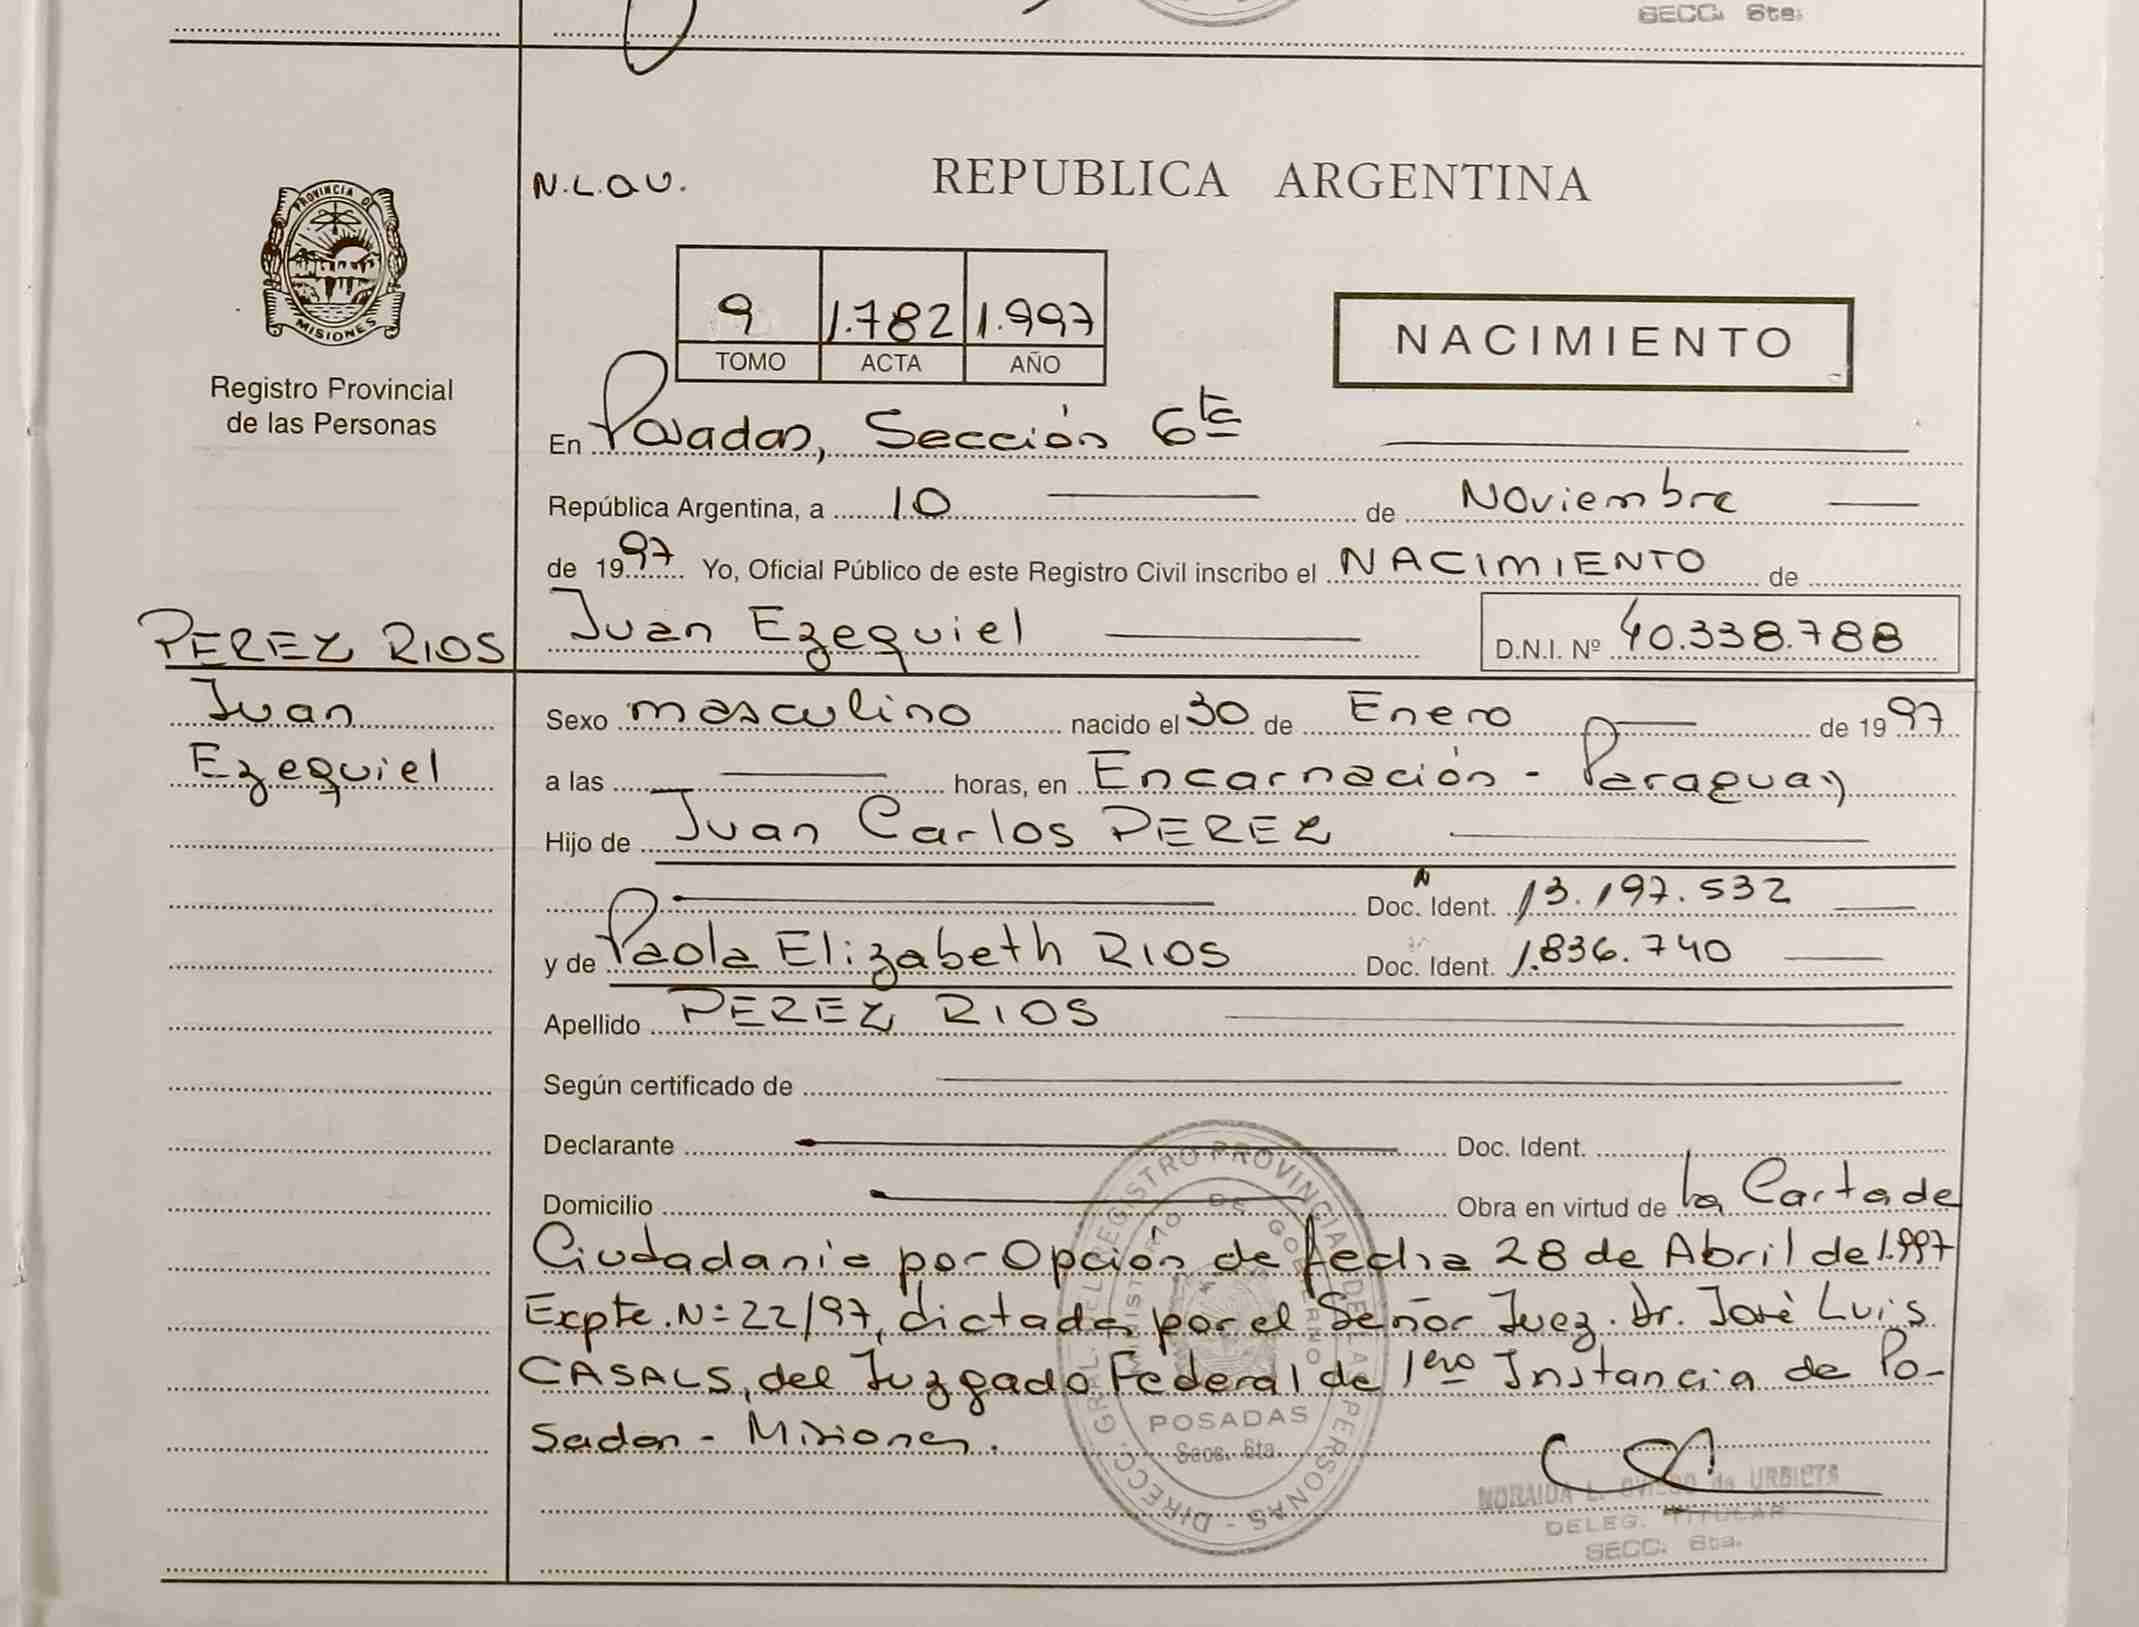 SECC. 6ta.
PROVINCIA DE
MISIONES
Registro Provincial
de las Personas
N.L.O.U.
REPUBLICA ARGENTINA
9 1.782 1.997
TOMO ACTA AÑO
NACIMIENTO
En Posadas, Sección 6ta
República Argentina, a 10 de Noviembre
de 1997 Yo, Oficial Público de este Registro Civil inscribo el NACIMIENTO de
PEREZ RIOS
Juan Ezequiel D.N.I. Nº 40.338.788
Juan
Ezequiel
Sexo masculino nacido el 30 de Enero de 1997
a las horas, en Encarnación - Paraguay
Hijo de Juan Carlos PEREZ
Doc. Ident. 13.197.532
y de Paola Elizabeth RIOS Doc. Ident. 1.836.740
Apellido PEREZ RIOS
Según certificado de
Declarante Doc. Ident.
Domicilio Obra en virtud de la Carta de
Ciudadanía por Opción de fecha 28 de Abril de 1.997
Expte. Nº 22/97, dictada por el Señor Juez. Dr. José Luis
CASALS, del Juzgado Federal de 1ero Instancia de Po-
sadas - Misiones.
DIRECC. GRAL. DEL REGISTRO PROVINCIAL DE LAS PERSONAS
MINISTERIO DE GOBIERNO
POSADAS
Secc. 6ta.
NORAIDA L. OVIEDO de URBIETA
DELEG. TITULAR
SECC. 6ta.